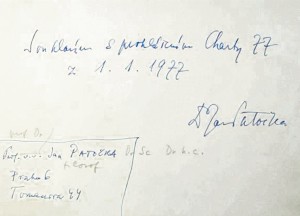 Souhlasím s prohlášením Charty 77
z 1. 1. 1977
Dr Jan Patočka
prof. Dr.
Prof. Jan PATOČKA DrSc. Dr. h. c.
filosof
Praha 6
Tomanova 44